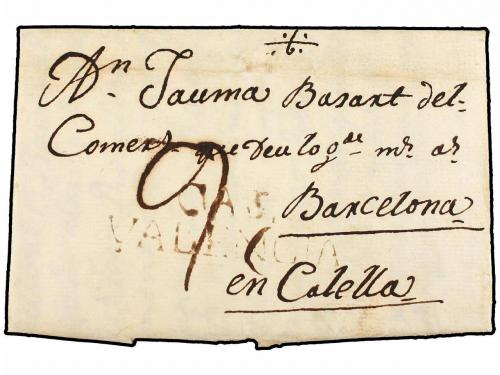 An Jauma Basart del
Comers que Deu log.de m.s a.s
9
CAS.
VALENCIA
Barcelona
en Calella